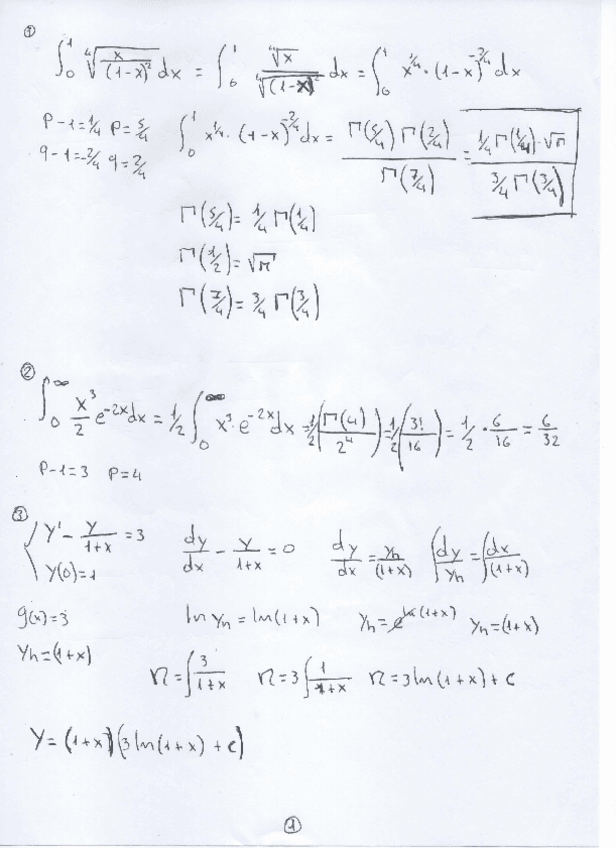 ①
∫₀¹ ⁴√(x/(1-x)²) dx = ∫₀¹ ⁴√x / ⁴√(1-x)² dx = ∫₀¹ x^(1/4) · (1-x)^(-2/4) dx
P-1=1/4 P=5/4 ∫₀¹ x^(1/4) · (1-x)^(-2/4) dx = Γ(5/4) Γ(2/4) / Γ(7/4) = 1/4 Γ(1/4) · √π / 3/4 Γ(3/4)
q-1=-2/4 q=2/4
Γ(5/4) = 1/4 Γ(1/4)
Γ(1/2) = √π
Γ(7/4) = 3/4 Γ(3/4)
②
∫₀^∞ x³/2 e^(-2x) dx = 1/2 ∫₀^∞ x³ · e^(-2x) dx = 1/2 (Γ(4)/2⁴) = 1/2 (3!/16) = 1/2 · 6/16 = 6/32
P-1=3 P=4
③
y' - y/(1+x) = 3 dy/dx - y/(1+x) = 0 dy/dx = yh/(1+x) ∫dy/yh = ∫dx/(1+x)
y(0)=1
g(x)=3 ln yh = ln(1+x) yh = e^(ln(1+x)) yh = (1+x)
yh = (1+x)
n = ∫3/(1+x) n = 3∫1/(1+x) n = 3ln(1+x) + c
y = (1+x)(3ln(1+x) + c)
①